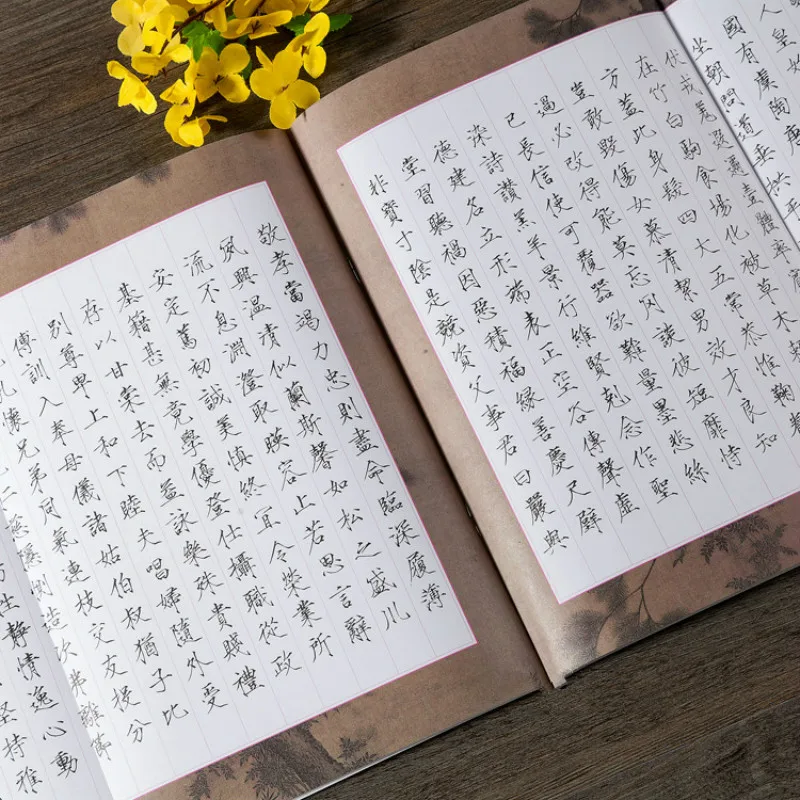 人皇始
國有虞陶唐
坐朝問道垂拱平
伏戎羌遐邇壹體率
在竹白駒食場化被草木
方蓋此身髮四大五常恭惟鞠養
豈敢毀傷女慕清絜男效才良知
過必改得能莫忘罔談彼短靡恃
己長信使可覆器欲難量墨悲絲
染詩讚羔羊景行維賢剋念作聖
德建名立形端表正空谷傳聲虛
堂習聽禍因惡積福緣善慶尺璧
非寶寸陰是競資父事君曰嚴與
敬孝當竭力忠則盡命臨深履薄
夙興溫清似蘭斯馨如松之盛川
流不息淵澄取暎容止若思言辭
安定篤初誠美慎終宜令榮業所
基籍甚無竟學優登仕攝職從政
存以甘棠去而益詠樂殊貴賤禮
別尊卑上和下睦夫唱婦隨外受
傅訓入奉母儀諸姑伯叔猶子比
兒孔懷兄弟同氣連枝交友投分
慈隱惻造次弗離節
性靜情逸心動
堅持雅